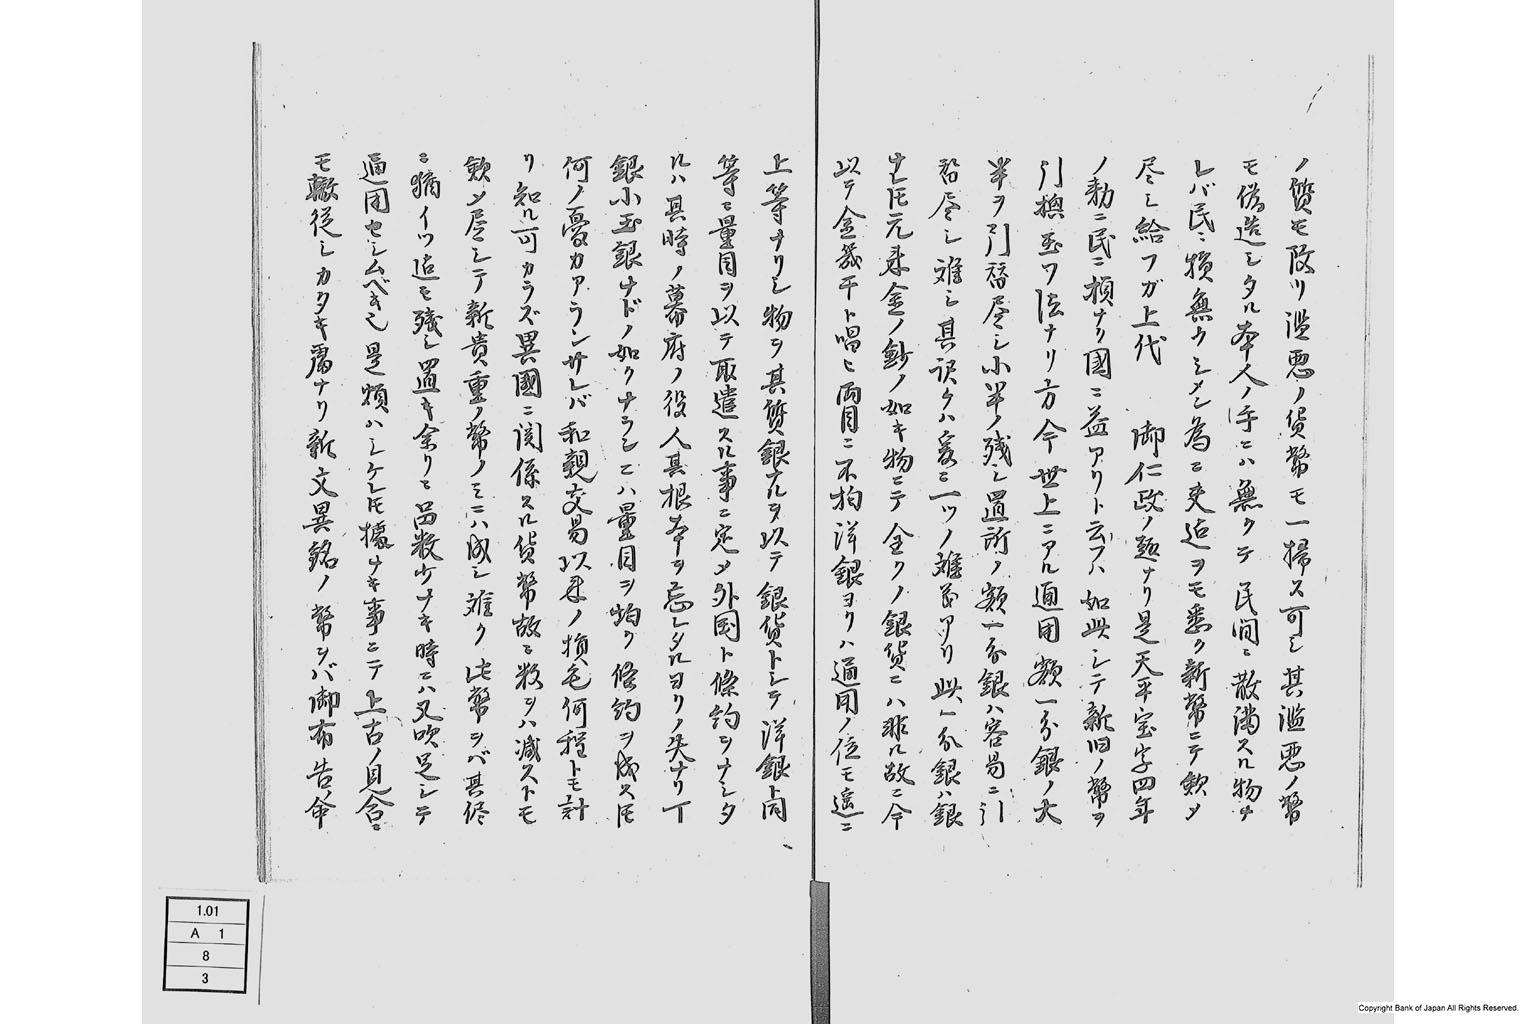 ノ質モ改リ濫悪ノ貨幣モ一掃ス可シ其濫悪ノ幣
モ偽造シタル本人ノ手ニハ無クテ民間ニ散満スル物ナ
レバ民ニ損無ウシメン為ニ夫迄ヲモ悉ク新幣ニテ欽メ
尽シ給フガ上代 御仁政ノ趣ナリ是天平宝字四年
ノ勅ニ民ニ損ナク國ニ益アリト云フハ如此シテ新旧ノ幣ヲ
引換玉フ法ナリ方今世上ニアル通用額一分銀ノ大
半ヲ引替尽シ小半ノ残シ置所ノ額一分銀ハ容易ニ引
替尽シ難シ其訳ケハ爰ニ一ツノ難アリ此一分銀ハ銀
ナレ𪜈元来金ノ鈔ノ如キ物ニテ全クノ銀貨ニハ非ル故ニ今
以テ金幾干ト唱ヒ両目ニ不拘洋銀ヨリハ通用ノ位モ遥ニ
上等ナリシ物ヲ其質銀ナルヲ以テ銀貨トシテ洋銀ト同
等ニ量目ヲ以テ取遣スル事ニ定メ外国ト條約ヲナシタ
ルハ其時ノ幕府ノ役人其根本ヲ忘レタルヨリノ失ナリ丁
銀小玉銀ナドノ如クナランニハ量目ヲ拘ク條約ヲ成ス𪜈
何ノ憂カアランサレバ和親交易以来ノ損毛何程トモ計
リ知ル可カラズ異國ニ関係スル貨幣故ニ数ヲハ減ストモ
欽メ尽シテ新貴重ノ幣ノミニハ成シ難ク此幣ヲバ其侭
ニ痛イツ迄モ残シ置キ余リニ員数少ナキ時ニハ又吹足シテ
通用セシムベキ也是煩ハシケレ𪜈據ナキ事ニテ上古ノ見合ニ
モ轍従シカタキ属ナリ新文異銘ノ幣ヲバ御布告ノ命
1.01
A 1
8
3
Copyright Bank of Japan All Rights Reserved.